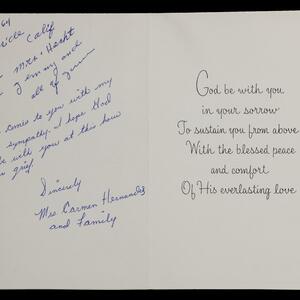 64
Calif
Mrs Hecht
and
all of
comes to you with my
sympathy. I hope God
be with you at this hour
grief
Sincerly
Mrs. Carmen Hernandez
and Family
God be with you
in your sorrow
To sustain you from above
With the blessed peace
and comfort
Of His everlasting love